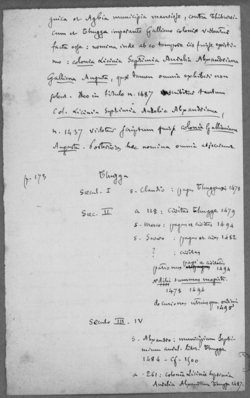 punica et Agbia municipia mansisse, contra Thibursi-
cum et Thugga imperante Gallieno coloniae videntur
factae esse: nomina inde ab eo tempore iis fuisse optimo
mo: colonia Licinia Septimia Aurelia Alexandriana
Galliena Augusta, quo tamen omnia oppidum non
solent. Sic in titulo n. 1487 tantum
Col. Licinia Septimia Aurelia Alexandriana,
n. 1437 videtur scriptum fuisse colonia Galliena
Augusta. Postea haec nomina omnia abjecerunt.
p. 173 Thugga
Saecul. I s. Claudio: pagus Thuggensis 1478
Saec. II a 118: civitas Thugga 1479
s. Marco: pagus et civitas 1494
s. Severo: pagus et civ. 1482
? : civitas
pagi et civitatis
patronus 1494
aediles summus magistr.
1478 1494
decuriones utriusque ordinis
1498
Saeculo III. IV
s. Alexandro: municipium Septi-
mium Aurel. liber. Thugga
1484 - cf. 1500
a. 261: colonia Licinia Septimia
Aurelia Alexandriana Thugga 1487.